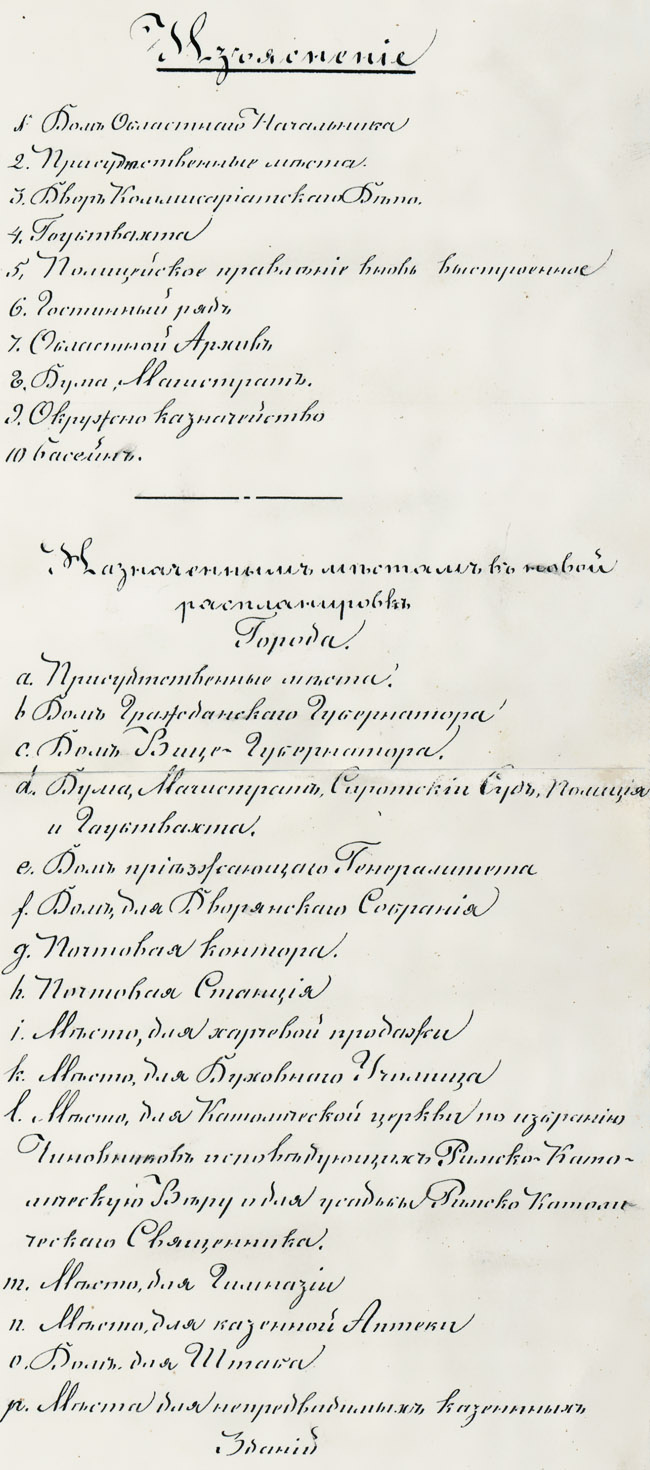 Изъясненіе
1. Домъ Областнаго Начальника
2. Присудственные мѣста.
3. Дворъ Коммисаріатскаго Депо.
4. Гоуптвахта
5. Полицейское правленіе вновь выстроенное
6. Гостинный рядъ
7. Областной Архивъ
8. Дума, Магистратъ.
9. Окружно казначейство
10 басейнъ.
Назначеннымъ мѣстамъ въ новой
распланировкѣ
Города.
a. Присудственные мѣста.
b Домъ Гражданскаго Губернатора
c. Домъ Вице-Губернатора.
d. Дума, Магистратъ, Сиротскій Судъ, Полиція
и Гауптвахта.
e. Домъ пріѣзжающаго Генералитета
f. Домъ для Дворянскаго Собранія
g. Почтовая контора.
h. Почтовая Станція
i. Мѣсто, для харчевой продажи
k. Мѣсто, для Духовнаго Училища
l. Мѣсто, для Католической церкви по избранію
Чиновниковъ исповѣдующихъ Римско-Като-
лическую Вѣру и для усадьбы Римско Католи
ческаго Священника.
m. Мѣсто, для Гимназіи
n. Мѣсто, для казенной Аптеки
o. Домъ. для Штаба
p. Мѣста для непредвидимыхъ казеннныхъ
Зданій